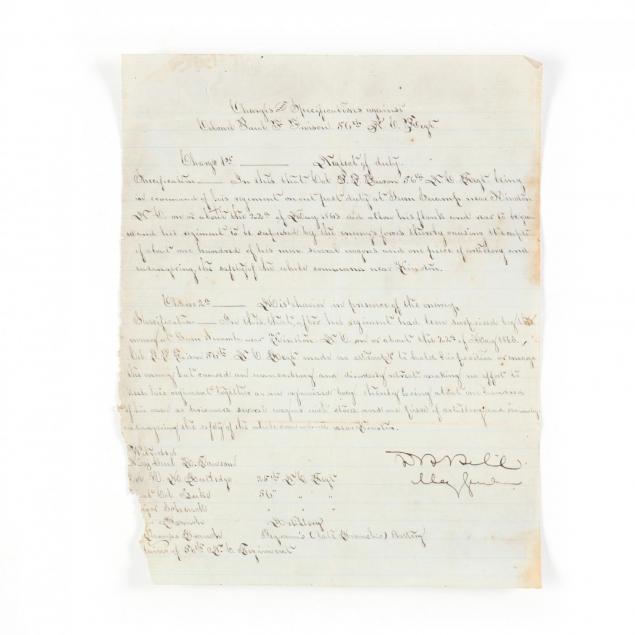 Charges & Specifications against
Colonel Paul F Faison 56th N. C. Regt
Charge 1st Neglect of duty
Specification In this that Col P. F. Faison 56th N C Regt being
in command of his regiment on out post duty at Gum Swamp near Kinston
N C on or about the 22d of May 1863 did allow his flank and rear to be
and his regiment to be surprised by the enemy's force thereby causing the capture
of about one hundred of his men several wagons and one piece of artillery and
endangering the safety of the whole command near Kinston.
Charge 2d Misbehavior in presence of the enemy
Specification In this that after his regiment had been surprised by the
enemy at Gum Swamp near Kinston N. C. on or about the 22d of May 1863.
Col P. F. Faison 56th N. C. Regt made no attempt to hold his position or engage
the enemy but ordered an unnecessary and disorderly retreat making no effort to
his regiment together as an organized body thereby losing about one hundred
of his men as prisoners several wagons with stores and one piece of artillery and
endangering the safety of the whole command near Kinston
Witnesses
Brig Genl R. Ransom
H. M. Rutledge 25th N. C. Regt
Col Luke 56 " "
Schenck " "
Branch Artillery
Branch (late Branch's) Artillery
of 56th N. C. Regiment
D H Hill
Maj Genl